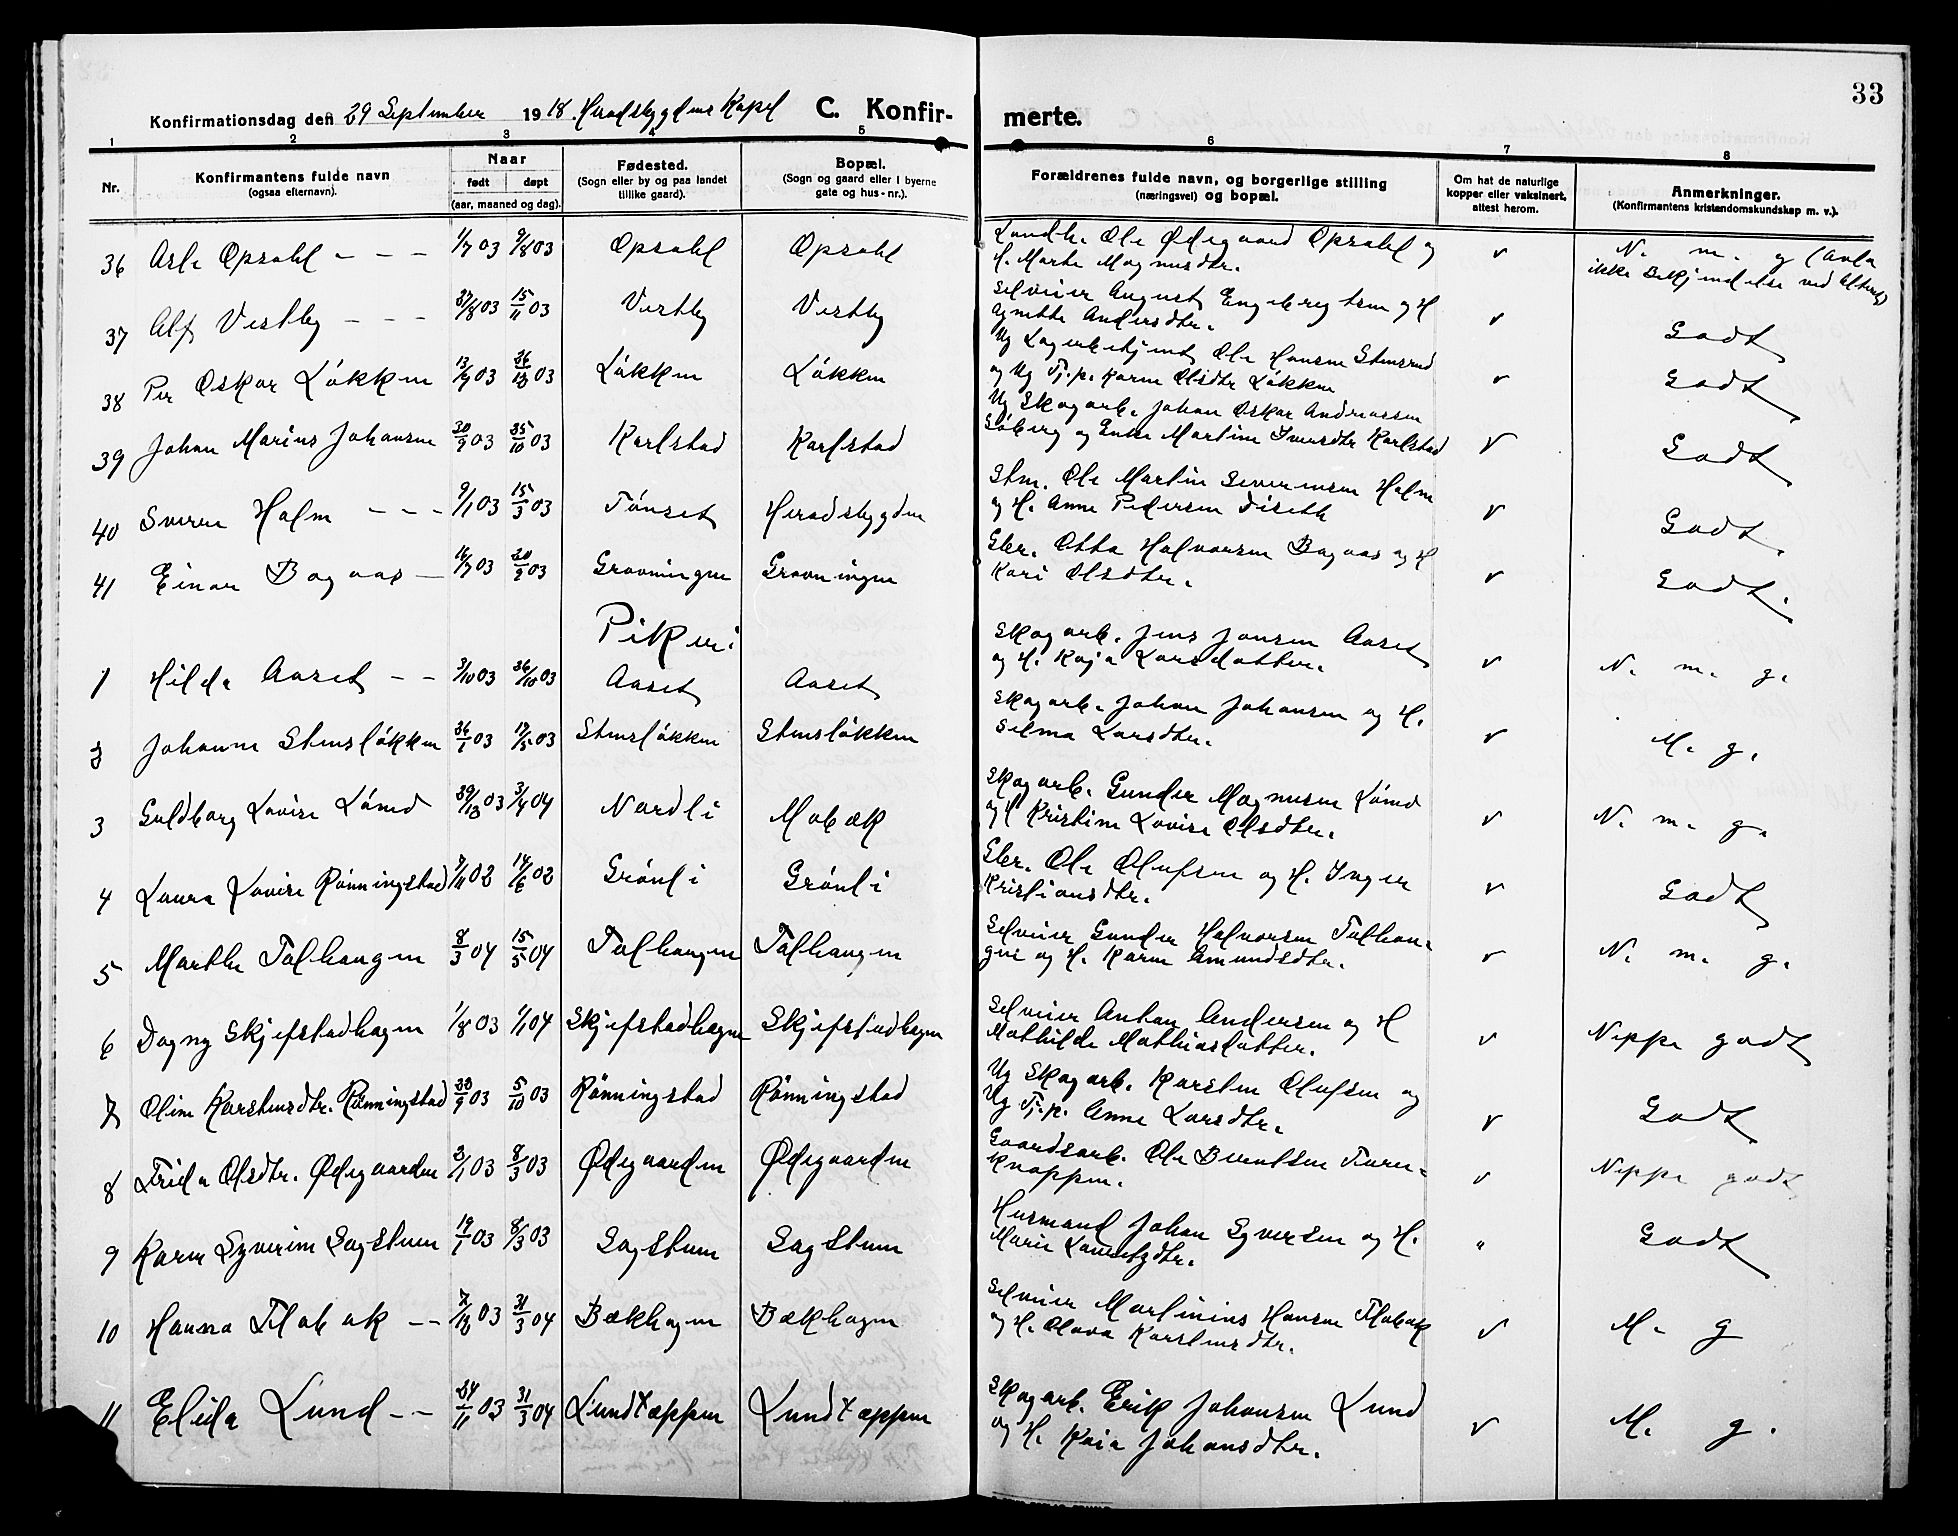 33
Konfirmationsdag den 29 September 1918. Heradsbygdens Kapel C. Konfirmerte.
1 2 3 4 5 6 7 8
Nr. Konfirmantens fulde navn (ogsaa efternavn). Naar født døpt (aar, maaned og dag). Fødested. (Sogn eller by og paa landet tillike gaard). Bopæl. (Sogn og gaard eller i byerne gate og hus-nr.). Forældrenes fulde navn, og borgerlige stilling (næringsvei) og bopæl. Om hat de naturlige kopper eller vaksinert, attest herom. Anmerkninger. (Konfirmantens kristendomskundskap m. v.).
36 Asle Opsahl - - - 1/7 03 9/8 03 Opsahl Opsahl Landh. Ole Ødegaard Opsahl og
H. Marte Magnusdtr. v N. m. g (avla
ikke Bekjendelse ved Alteret)
37 Alf Vestby - - - 27/8 03 15/11 03 Vestby Vestby Selveier August Engebregtsen og H
Agnette Andersdtr. v Godt
38 Per Oskar Løkken 13/9 03 26/12 03 Løkken Løkken Ug Lagerbetjent Ole Hansen Stensrud
og Ug Tj.p. Karen Olsdtr Løkken v Godt
39 Johan Marius Johansen 30/9 03 25/10 03 Karlstad Karlstad Ug Skogarb. Johan Oskar Andreassen
Søberg og Enke Martine Iversdtr Karlstad v Godt
40 Sverre Holm - - - 9/1 03 15/3 03 Tønset Heradsbygden Stm. Ole Martin Severinsen Holm
og H. Anne Pedersen Diseth v Godt.
41 Einar Bagaas - 16/7 03 20/9 03 Gravningen Gravningen Gbr. Otto Halvorsen Bagaas og H
Kari Olsdtr. v Godt.
Piker:
1 Hilda Aaset - - 3/10 03 26/10 03 Aaset Aaset Skogarb. Jens Jonsen Aaset
og H. Kaja Larsdatter. v N. m. g.
2 Johanne Stensløkken 26/1 03 17/5 03 Stensløkken Stensløkken Skogarb. Johan Johansen og H.
Selma Larsdtr. v M. g.
3 Guldborg Lovise Lömo 29/12 03 3/4 04 Nordli Mobæk Skogarb. Gunder Magnusen Lömo
og H Kristine Lovise Olsdtr. v N. m. g.
4 Laura Lovise Rönningstad 7/4 02 14/6 02 Grönli Grönli Gbr. Ole Olufsen og H. Inger
Kristiansdtr. v Godt
5 Marthe Tolhaugen 8/3 04 15/5 04 Tolhaugen Tolhaugen Selveier Gunder Halvorsen Tolhau-
gen og H. Karen Amundsdtr. v N. m. g.
6 Dagny Skjefstadhagen 1/8 03 1/1 04 Skjefstadhagen Skjefstadhagen Selveier Anton Andersen og H
Mathilde Mathiasdatter. v Neppe godt
7 Oline Karstensdtr. Rönningstad 23/9 03 5/10 03 Rönningstad Rönningstad Ug Skogarb. Karsten Olufsen og
Ug Tj.p. Anne Larsdtr. v Godt
8 Frida Olsdtr. Ødegaarden 2/1 03 8/3 03 Ødegaarden Ødegaarden Gaardsarb. Ole Berntsen Furu-
knappen. v Neppe godt
9 Karen Syverine Sagstuen 19/1 03 8/3 03 Sagstuen Sagstuen Husmand Johan Syversen og H.
Marie Lauritzdtr. " Godt
10 Hanna Flobak - - 7/12 03 31/3 04 Bækhagen Bækhagen Selveier Martinius Hansen Flobak
og H. Olava Karstensdtr. v M. g
11 Elida Lund - - 24/11 03 31/3 04 Lundtæppen Lundtæppen Skogarb. Erik Johansen Lund
og H. Kaia Johansdtr. v M. g.